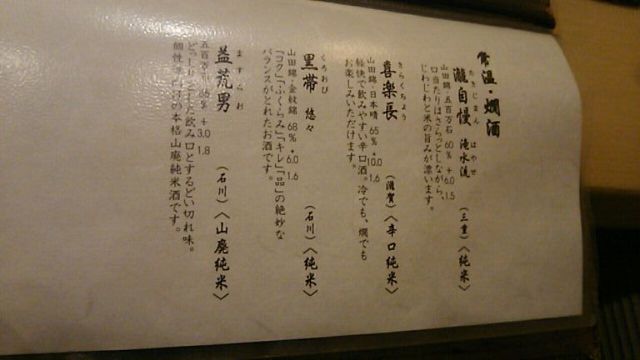 常温・燗酒
たきじまん はやせ
瀧自慢 滝水流 (三重)〈純米〉
山田錦・五百万石 60% +6.0 1.5
口当たりはさらっとしながら、
じわじわと米の旨みが漂います。
きらくちょう
喜楽長 (滋賀)〈辛口純米〉
山田錦・日本晴 65% +10.0 1.6
軽快で飲みやすい辛口酒。冷でも、燗でも
お楽しみいただけます。
くろおび
黒帯 悠々 (石川)〈純米〉
山田錦・金紋錦 68% +6.0 1.6
「コク」「ふくらみ」「キレ」「品」の絶妙な
バランスがとれたお酒です。
ますらお
益荒男 (石川)〈山廃純米〉
五百万石 65% +3.0 1.8
どっしりとした飲み口とするどい切れ味。
個性キラリの本格山廃純米酒です。